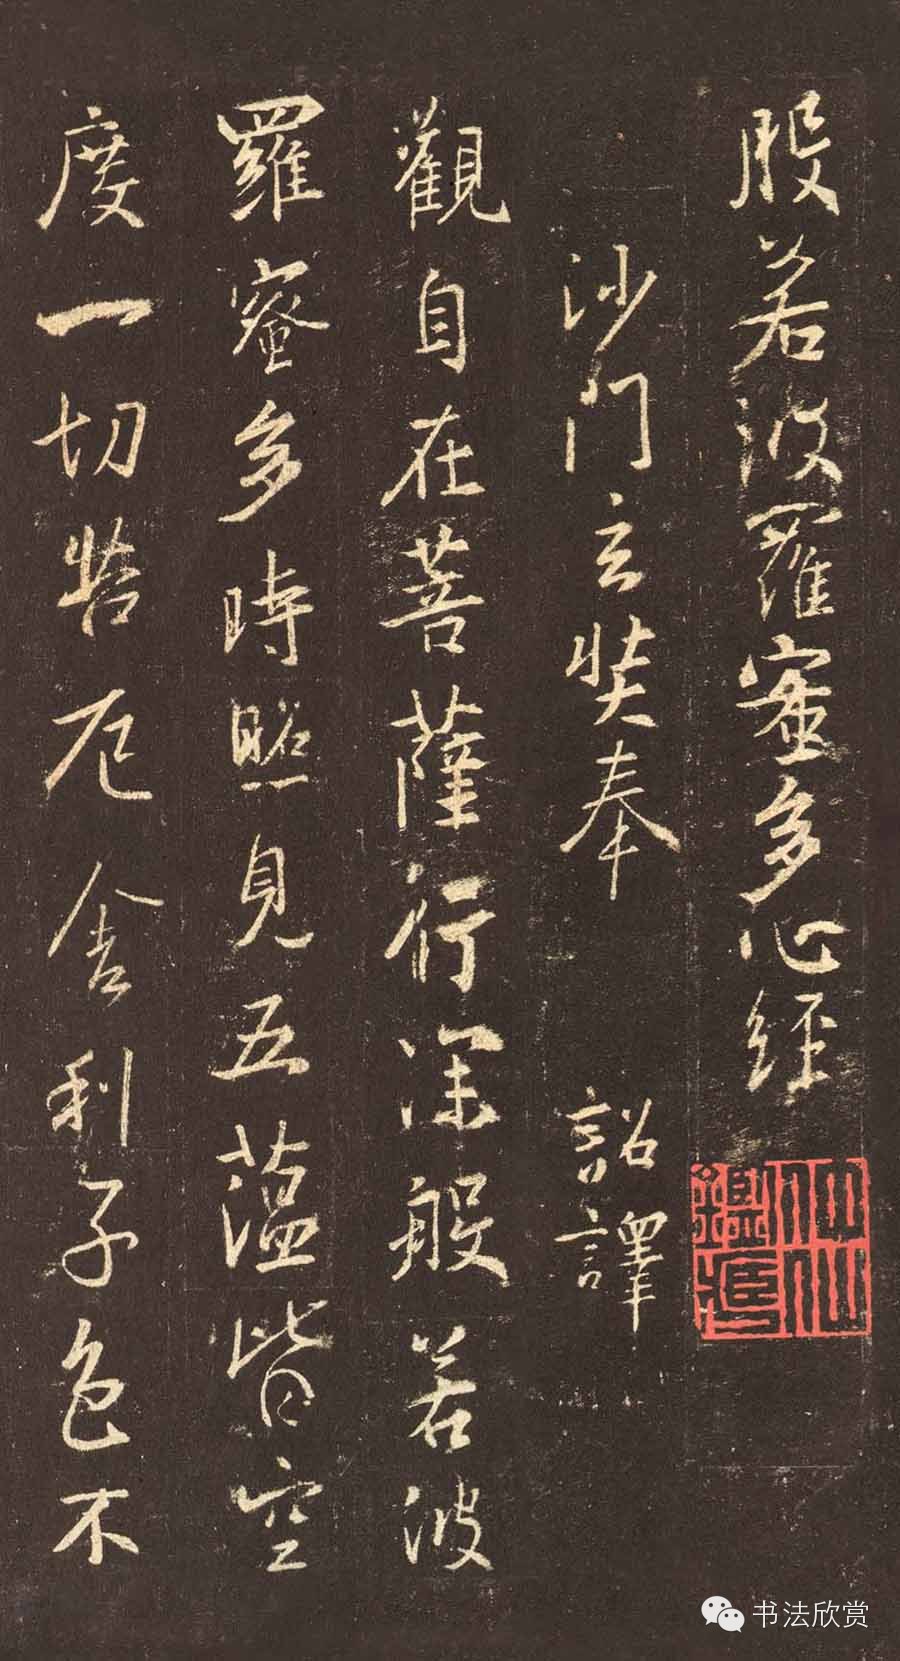 般若波羅蜜多心經
沙門玄奘奉 詔譯
觀自在菩薩行深般若波
羅蜜多時照見五蘊皆空
度一切苦厄舍利子色不
书法欣赏